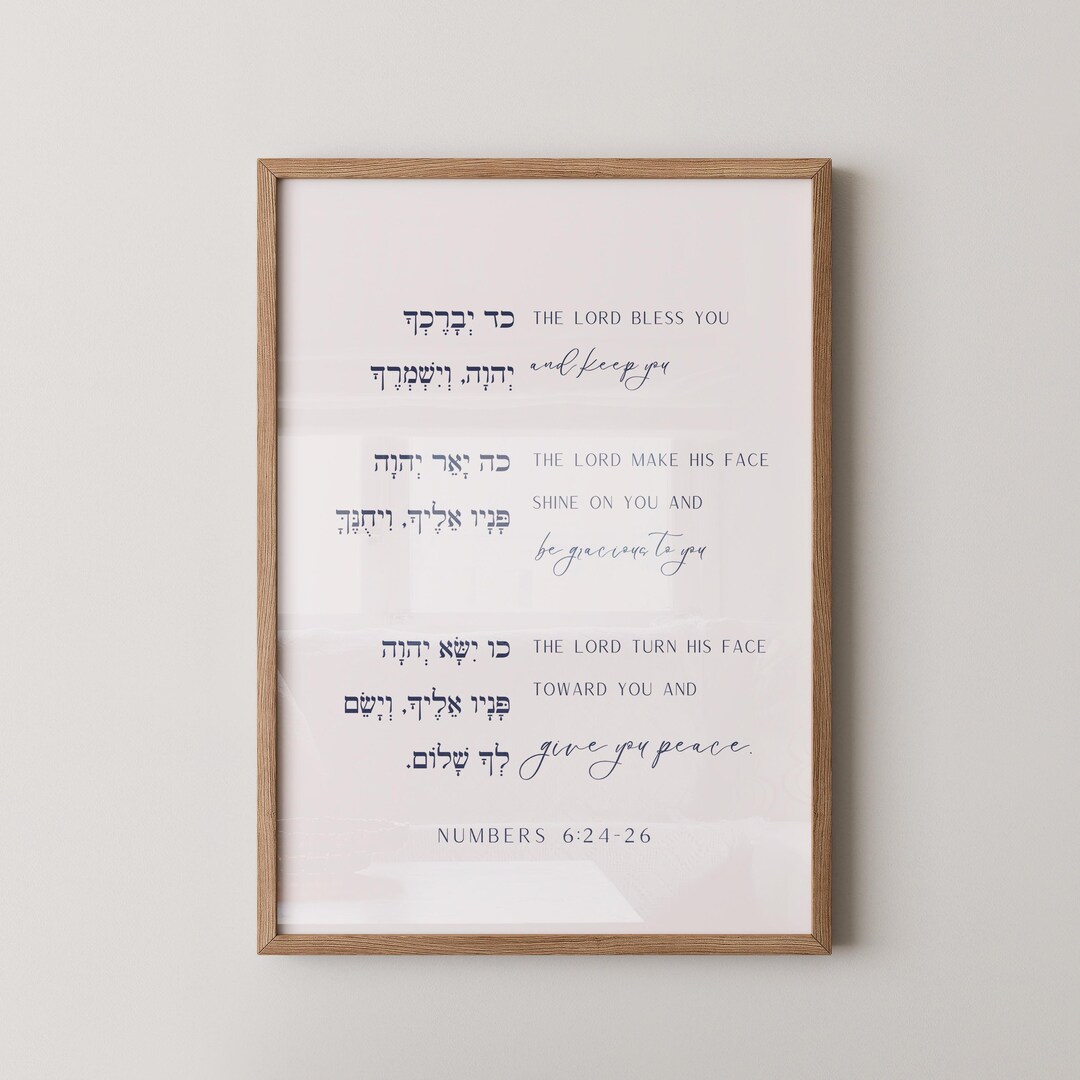 כד יְבָרֶכְךָ
יְהוָה, וְיִשְׁמְרֶךָ
THE LORD BLESS YOU
and keep you
כה יָאֵר יְהוָה
פָּנָיו אֵלֶיךָ, וִיחֻנֶּךָּ
THE LORD MAKE HIS FACE
SHINE ON YOU AND
be gracious to you
כו יִשָּׂא יְהוָה
פָּנָיו אֵלֶיךָ, וְיָשֵׂם
לְךָ שָׁלוֹם.
THE LORD TURN HIS FACE
TOWARD YOU AND
give you peace.
NUMBERS 6:24-26